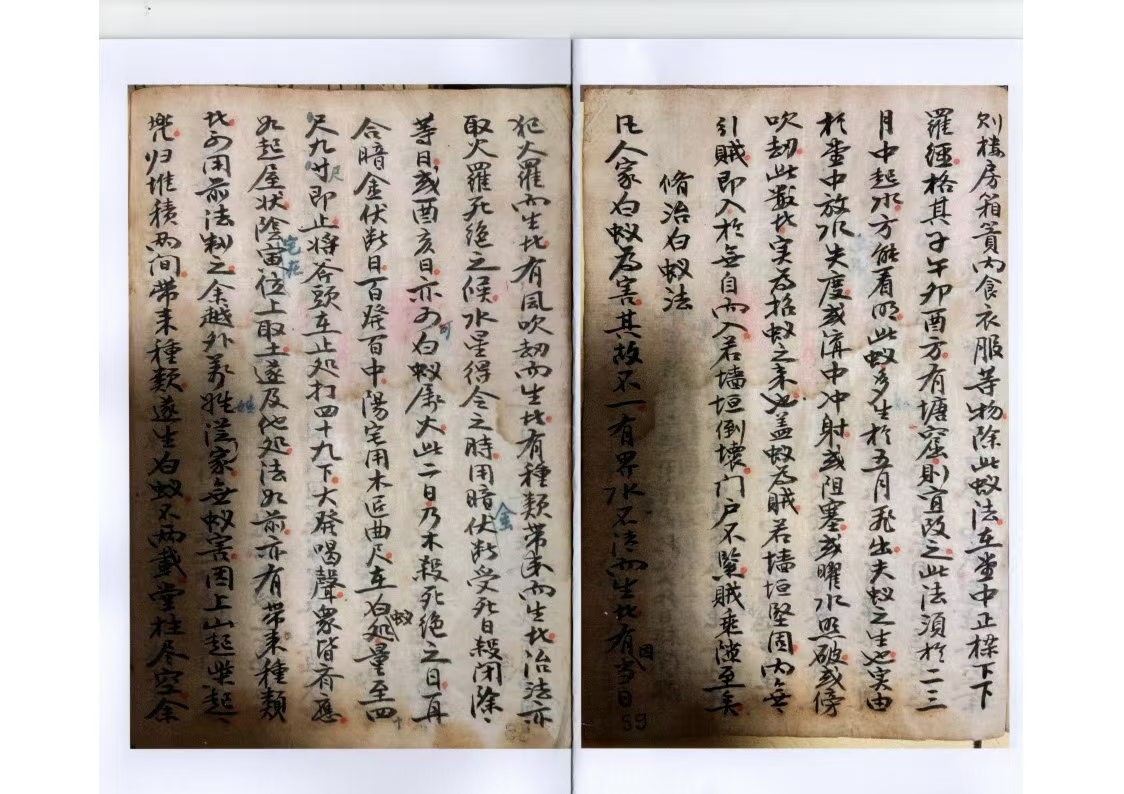 则楼房箱賁内食衣服等物除此蚁法在堂中正樑下下
羅經格其子午卯酉方有塘窟則宜改之此法須於二三
月中起水方能看明此蚁多生於五月飛出夫蚁之生也実由
於堂中放水失度或溝中冲射或阻塞或曜水照破或傍
吹劫此數者実為招蚁之来也盖蚁為賊若墻垣堅固内無
引賊即入於無自而入若墻垣倒壞门户不緊賊乘隙至矣
脩治白蚁法
凡人家白蚁為害其故不一有界水不清而生者有因当日
59
犯火羅而生者有風吹劫而生者有種類带来而生者治法亦
取火羅死绝之候水星得令之時用暗金伏断受死日殺闭除
等日或酉亥日亦可白蚁属火此二日乃木殺死绝之日再
合暗金伏断日百發百中陽宅用木匠曲尺在白蚁处量至四
尺九寸即止将斧頭在止处打四十九下大發喝聲衆皆齐應
如起屋状陰宅在寅位上取土遂及他处法如前亦有带来種類
者可用前法制之余越外养姓家無蚁害因上山起柴起
兜归堆積两间带来種類遂生白蚁不两載堂柱尽空余